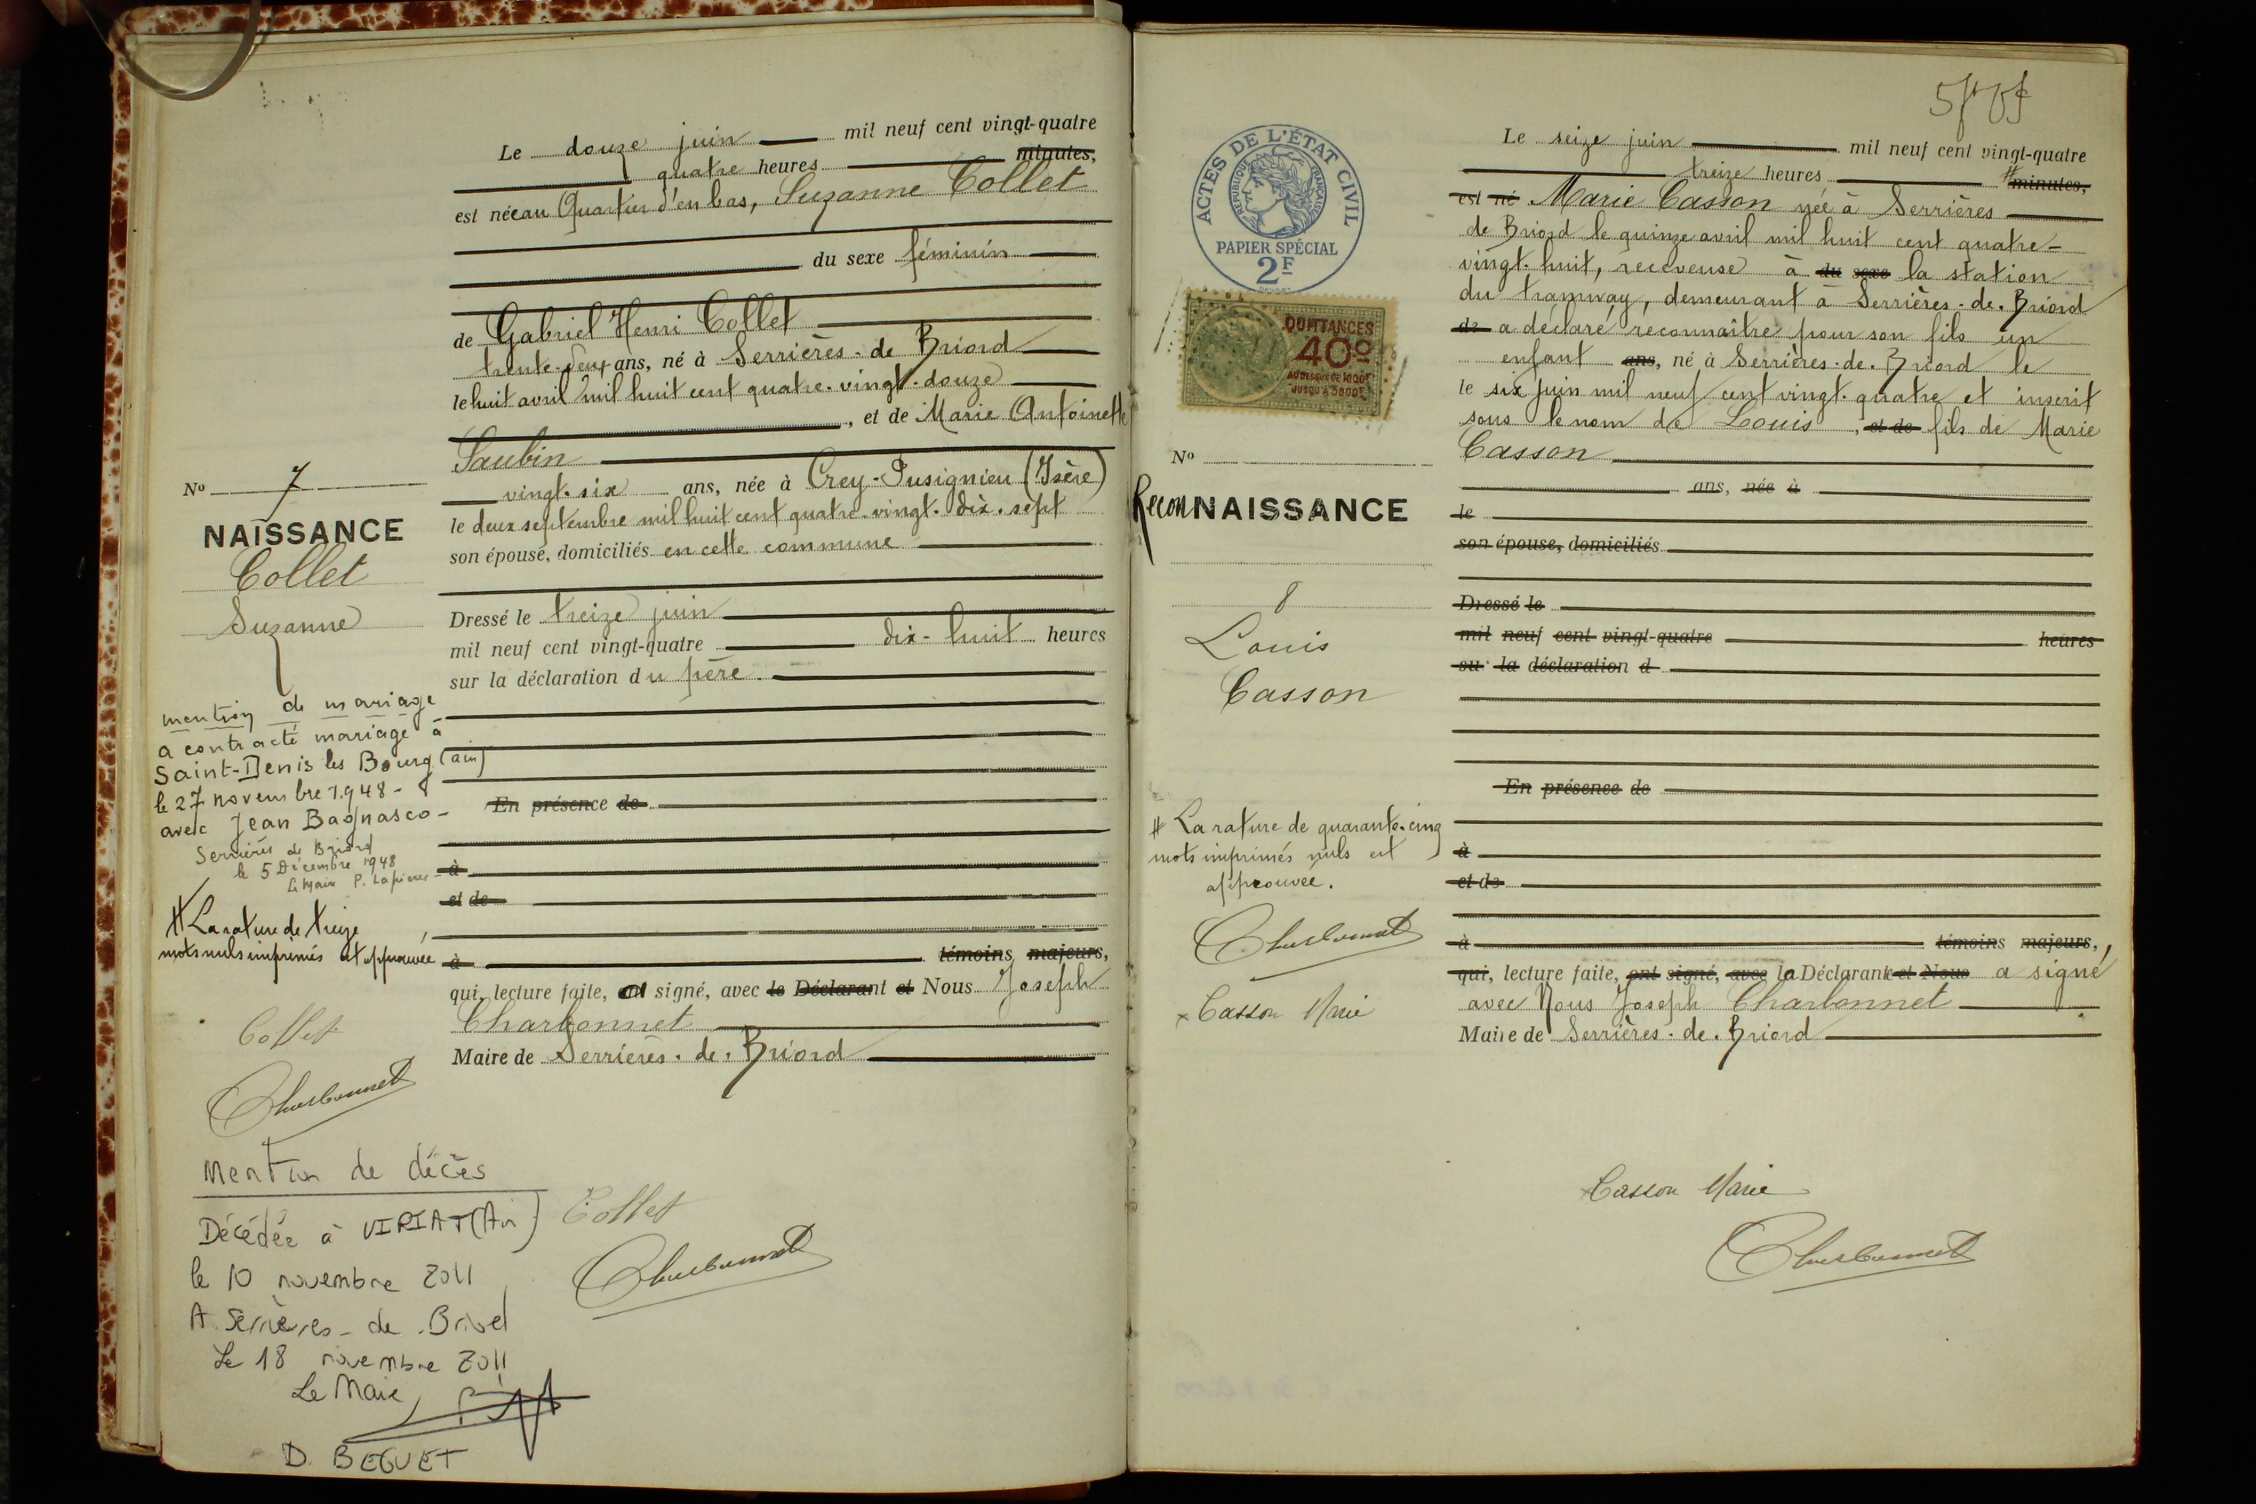 Le douze juin mil neuf cent vingt-quatre
quatre heures minutes,
est née au Quartier d'en bas, Suzanne Collet
du sexe féminin
de Gabriel Henri Collet
trente-deux ans, né à Serrières-de-Briord
le huit avril mil huit cent quatre-vingt-douze
, et de Marie Antoinette
Saubin
vingt-six ans, née à Crey-Pusignieu (Isère)
le deux septembre mil huit cent quatre-vingt-dix-sept
son épouse, domiciliés en cette commune
Dressé le treize juin
mil neuf cent vingt-quatre dix-huit heures
sur la déclaration du père.
En présence de
à
et de
à témoins majeurs,
qui, lecture faite, ont signé, avec le Déclarant et Nous Joseph
Charbonnet
Maire de Serrières-de-Briord
No 7
NAISSANCE
Collet
Suzanne
mention de mariage
a contracté mariage à
Saint-Denis les Bourg (ain)
le 27 novembre 1948 -
avec Jean Bagnasco -
Serrières de Briord
le 5 Décembre 1948
Le Maire P. Lapierre
# La rature de treize
mots nuls imprimés est approuvée
Collet
Charbonnet
Mention de décès
Décédée à VIRIAT (Ain)
le 10 novembre 2011
A Serrières-de-Briord
Le 18 novembre 2011
Le Maire,
D. BEGUET
Collet
Charbonnet
ACTES DE L'ÉTAT CIVIL
RÉPUBLIQUE FRANÇAISE
PAPIER SPÉCIAL
2F
QUITTANCES
40c
AU DESSUS DE 1000F
JUSQU'À 3000F
Le seize juin mil neuf cent vingt-quatre
treize heures # minutes,
est né Marie Casson née à Serrières
de Briord le quinze avril mil huit cent quatre-
vingt-huit, receveuse à du sexe la station
du tramway, demeurant à Serrières-de-Briord
de a déclaré reconnaître pour son fils un
enfant ans, né à Serrières-de-Briord le
le six juin mil neuf cent vingt-quatre et inscrit
sous le nom de Louis, et de fils de Marie
Casson
ans, née à
le
son épouse, domiciliés
Dressé le
mil neuf cent vingt-quatre heures
sur la déclaration d
En présence de
à
et de
à témoins majeurs,
qui, lecture faite, ont signé, avec la Déclarante et Nous a signé
avec Nous Joseph Charbonnet
Maire de Serrières-de-Briord
No
ReconNAISSANCE
8
Louis
Casson
# La rature de quarante-cinq
mots imprimés nuls est
approuvée.
Charbonnet
Casson Marie
Casson Marie
Charbonnet